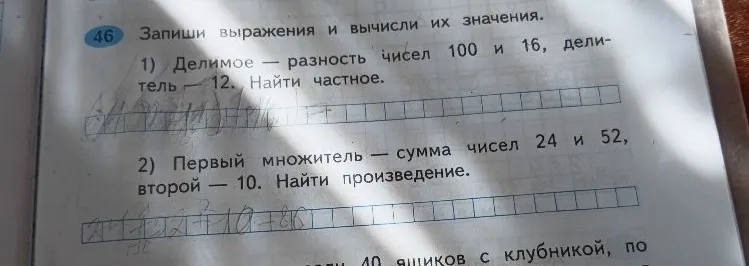 46 Запиши выражения и вычисли их значения.
1) Делимое — разность чисел 100 и 16, дели-
тель — 12. Найти частное.
2) Первый множитель — сумма чисел 24 и 52,
второй — 10. Найти произведение.
40 ящиков с клубникой, по